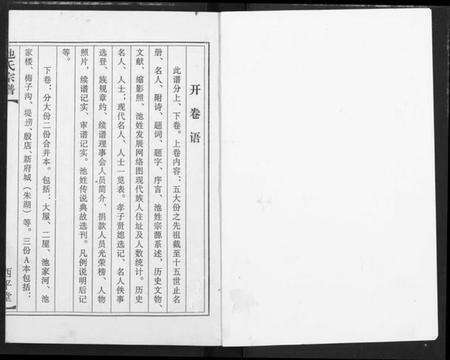 开卷语
此谱分上、下卷。上卷内容：五大份之先祖截至十五世止名
册、名人、附诗、题词、题字、序言、池姓宗源系述，历史文物、
文献、缩影照、池姓发展网络图现代族人住址及人数统计。历史
名人、人士；现代名人、人士一览表。孝子贤媳选记、名人佚事
选登、族规章约、续谱理事会人员简介、捐款人员光荣榜、人物
照片、续谱记实、审谱记实。池姓传说典故选刊。凡例说明后记
等。
下卷：分大份二份合并本。包括：大屋、二屋、池家河、池
家楼、梅子沟、堤涝、殷店、新府城（朱湖）等。三份A本包括：
池氏宗谱
西平堂